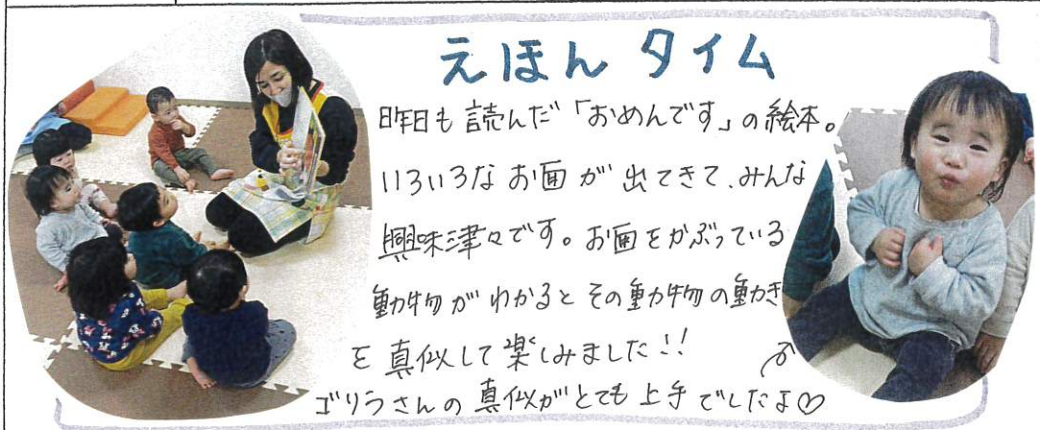 えほん タイム
昨日も読んだ「おめんです」の絵本。
いろいろなお面が出てきて、みんな
興味津々です。お面をかぶっている
動物がわかるとその動物の動き
を真似して楽しみました!!
ゴリラさんの真似がとても上手でしたよ♡